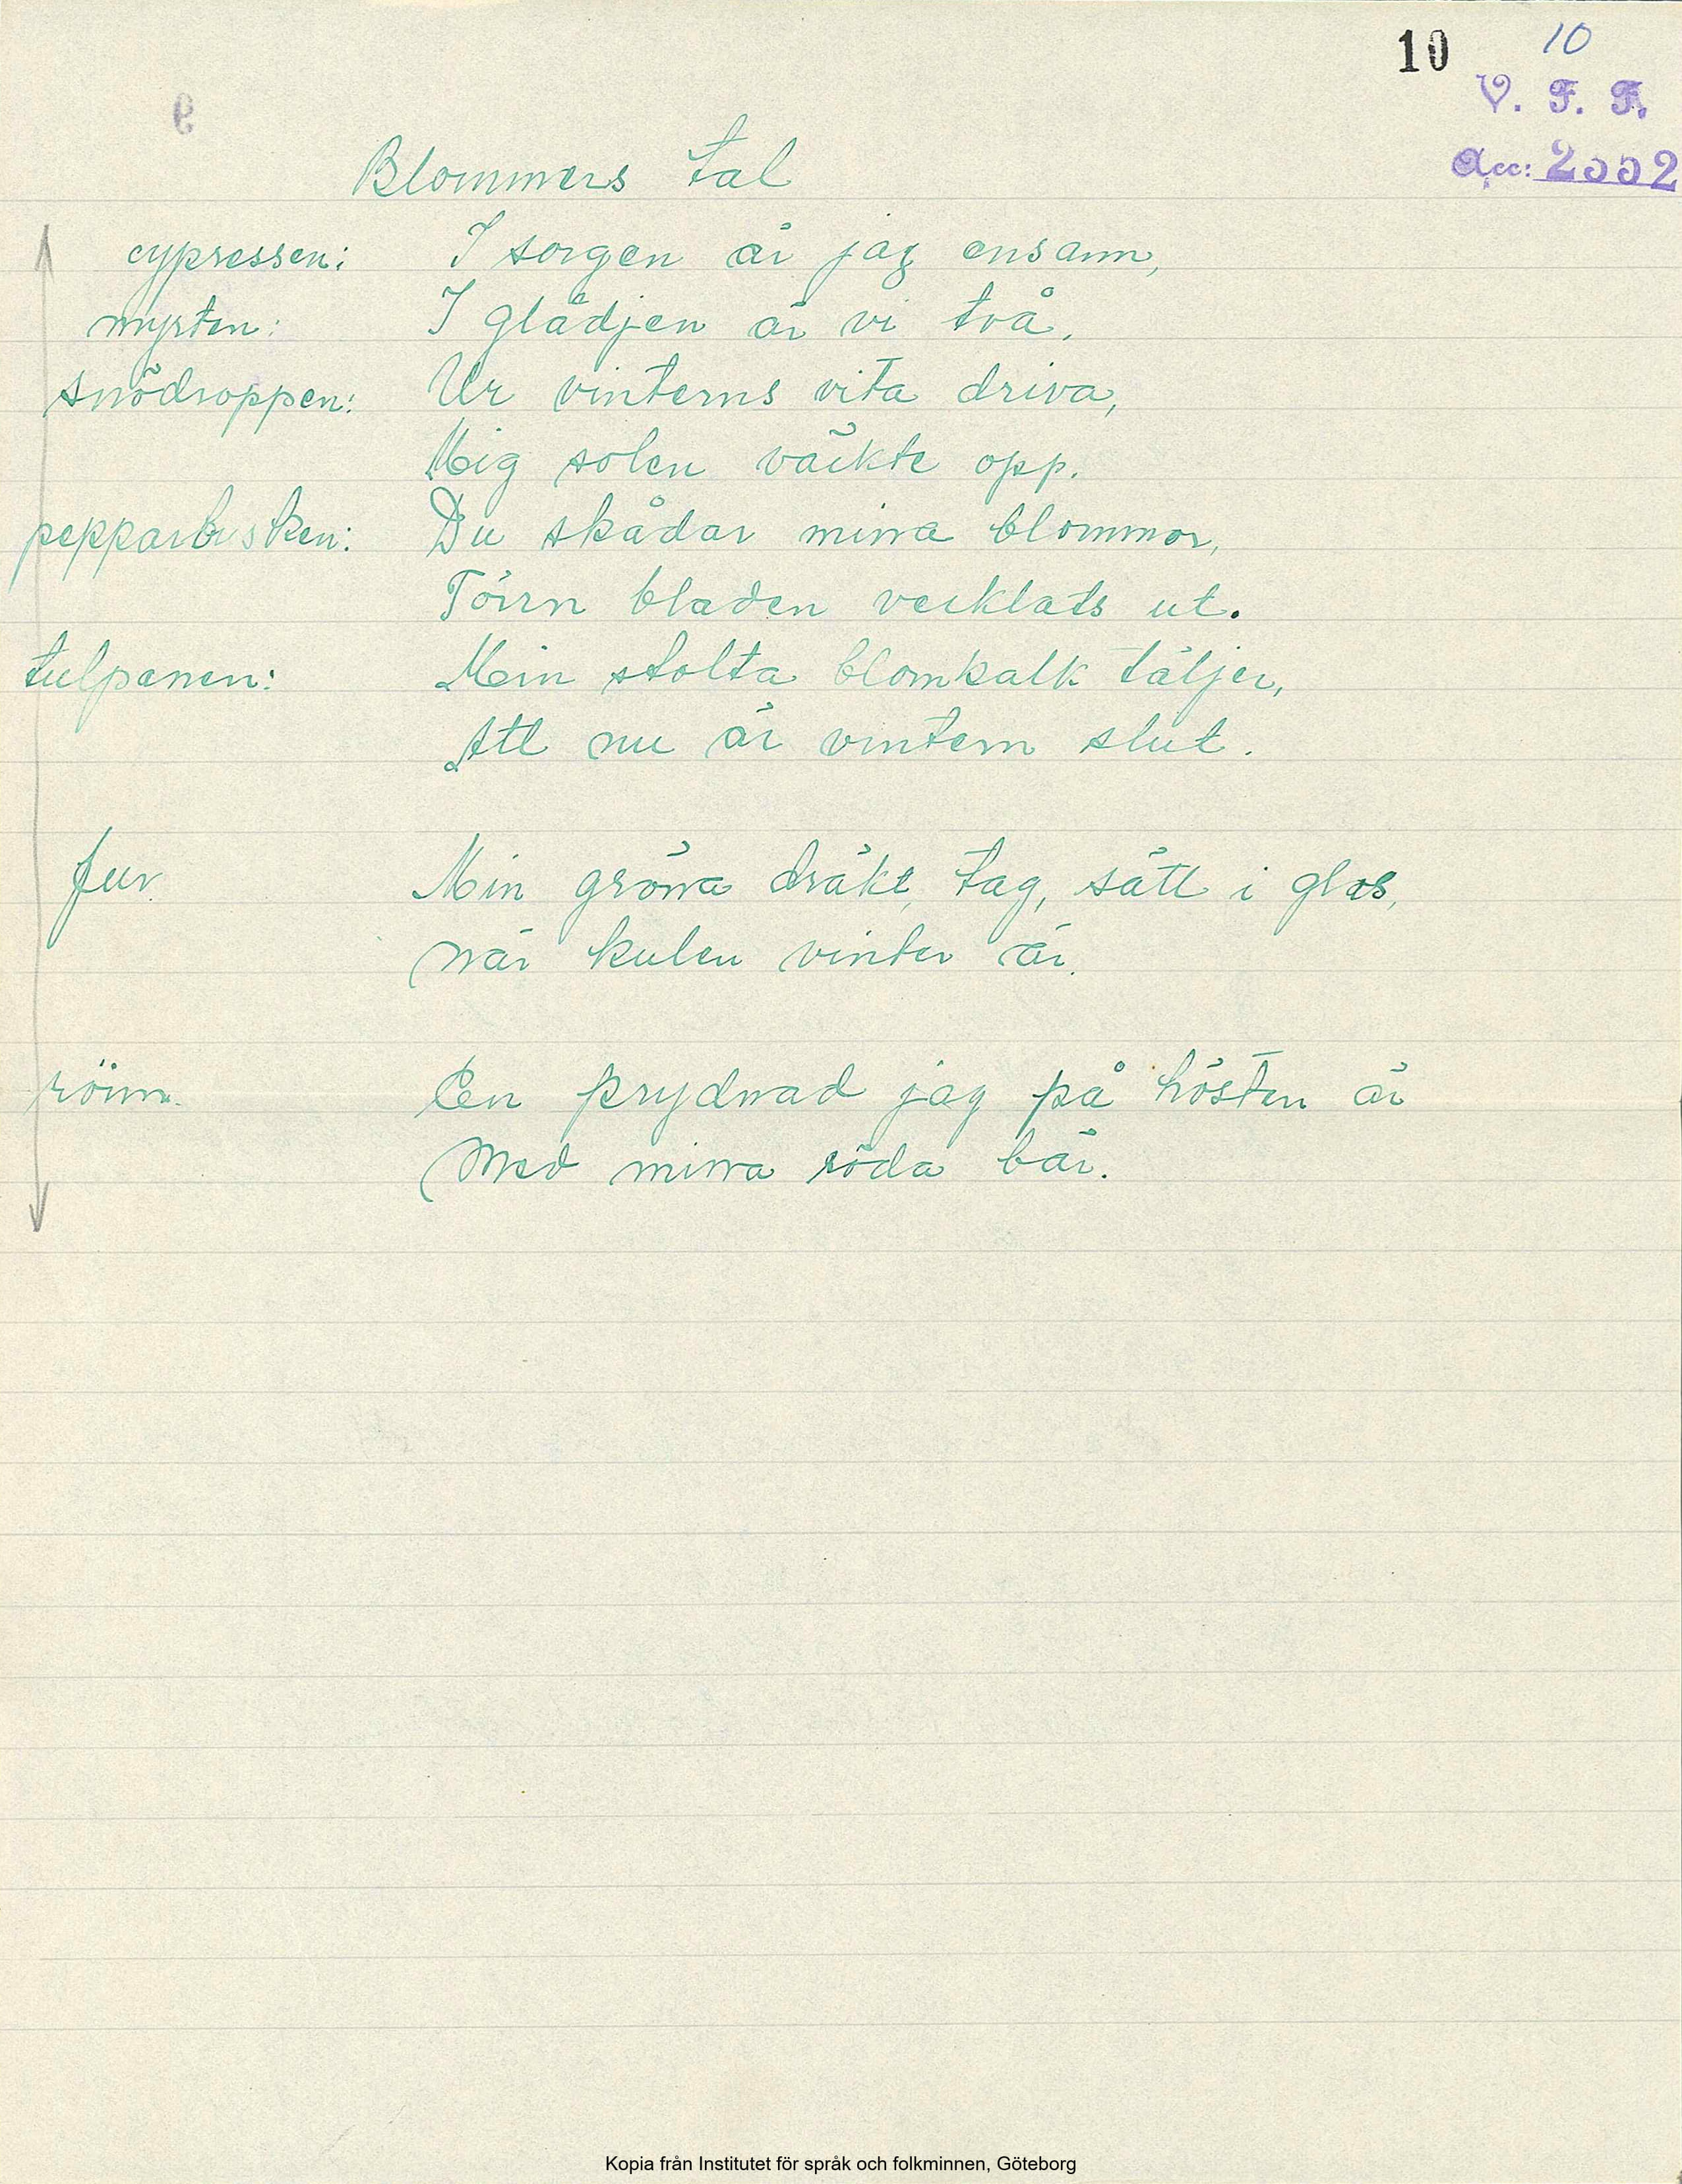 10 10
V. F. F.
Acc: 2552
Blommers tal
cypressen: I sorgen är jag ensam,
myrten: I glädjen är vi två.
snödroppen: Ur vinterns vita driva,
Mig solen väckte opp.
pepparbusken: Du skådar mina blommor,
Förrn bladen vecklats ut.
tulpanen: Min stolta blomkalk täljer,
Att nu är vintern slut.
fur. Min gröna dräkt, tag, sätt i glas,
när kulen vinter är.
rönn. En prydnad jag på hösten är
Med mina röda bär.
Kopia från Institutet för språk och folkminnen, Göteborg